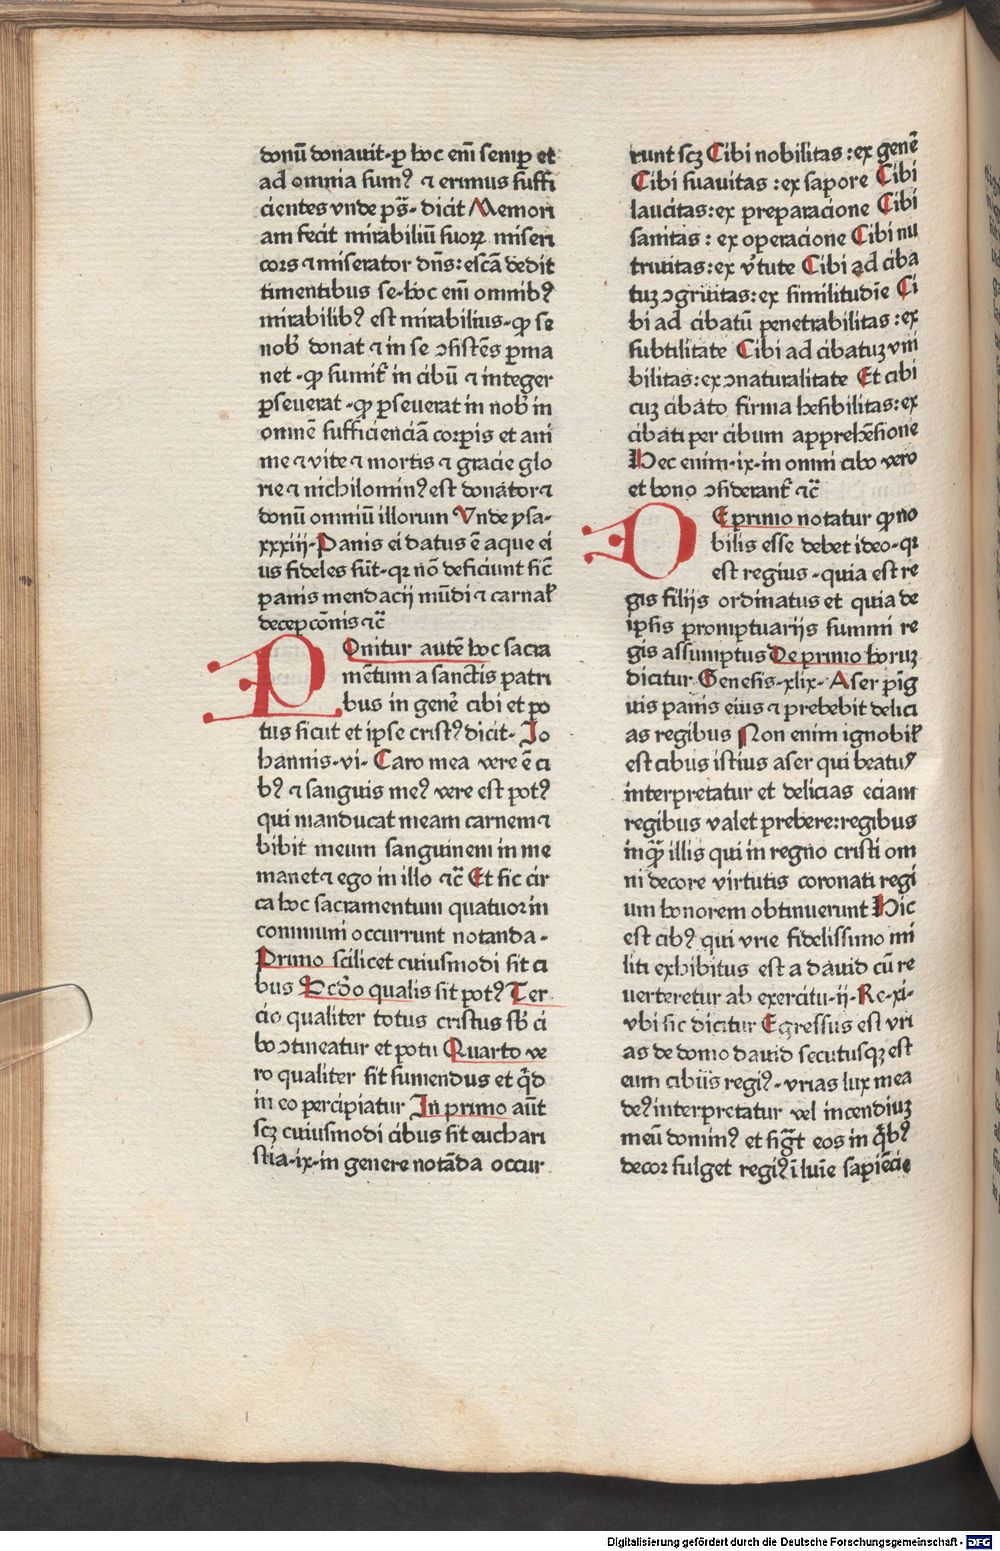 donū donauit·ꝑ hoc em̄ semꝑ et
ad omnia sumꝰ ⁊ erimus suffi
cientes vnde ps̄· dicit Memori
am fecit mirabiliū suoꝝ miseri
cors ⁊ miserator dn̄s: escā dedit
timentibus se·hoc em̄ omnibꝰ
mirabilibꝰ est mirabilius·ꝙ se
nob̄ donat ⁊ in se ꝯsistēs ꝑma
net ·ꝙ sumit̄ in cibū ⁊ integer
ꝑseuerat ·ꝙ ꝑseuerat in nob̄ in
omnē sufficienciā corꝑis et ani
me ⁊ vite ⁊ mortis ⁊ gracie glo
rie ⁊ nichilominꝰ est donator ⁊
donū omniū illorum Vnde ysa·
xxxiij·Panis ei datus ē aque ei
us fideles sūt·qꝛ nō deficiunt sic̄
panis mendacij mūdi ⁊ carnal̄
decepcōnis ⁊c̄
POnitur autē hoc sacra
mētum a sanctis patri
bus in gene̅ cibi et po
tus sicut et ipse cristꝰ dicit· Jo
hannis·vi· Caro mea vere ē ci
bꝰ ⁊ sanguis meꝰ vere est potꝰ
qui manducat meam carnem ⁊
bibit meum sanguinem in me
manet ⁊ ego in illo ⁊c̄ Et sic cir
ca hoc sacramentum quatuor in
communi occurrunt notanda·
Primo scilicet cuiusmodi sit ci
bus Scd̄o qualis sit potꝰ Ter
cio qualiter totus cristus sb̄ ci
bo ꝯtineatur et potu Quarto ve
ro qualiter sit sumendus et qͥd
in eo percipiatur Jn primo aūt
scꝫ cuiusmodi cibus sit euchari
stia·ix·in genere notāda occur
runt scꝫ Cibi nobilitas : ex genē
Cibi suauitas : ex sapore Cibi
laucitas: ex preparacione Cibi
sanitas : ex operacione Cibi nu
triuitas: ex v̄tute Cibi ad ciba
tuꝫ ꝯgruitas: ex similitudīe Ci
bi ad cibatū penetrabilitas : ex
subtilitate Cibi ad cibatuꝫ vni
bilitas: ex ꝯnaturalitate Et cibi
cuꝫ cibato firma hesibilitas: ex
cibati per cibum apprehēsione
Hec enim·ix·in omni cibo vero
et bono ꝯsiderant̄ ⁊c̄
DE primo notatur ꝙ no
bilis esse debet ideo·qꝛ
est regius ·quia est re
gis filijs ordinatus et quia de
ipsis promptuarijs summi re
gis assumptus De primo horuꝫ
dicitur Genesis·xlix· Aser pīg
uis panis eius ⁊ prebebit delici
as regibus Non enim ignobil̄
est cibus istius aser qui beatuꝰ
interpretatur et delicias eciam
regibus valet prebere: regibus
inqͣ illis qui in regno cristi om
ni decore virtutis coronati regi
um honorem obtinuerunt Hic
est cibꝰ qui vrie fidelissimo mi
liti exhibitus est a dauid cū re
uerteretur ab exercitu·ij·Re·xi·
vbi sic dicitur Egressus est vri
as de domo dauid secutusqꝫ est
eum cibus regiꝰ· vrias lux mea
deꝰ interpretatur vel incendiuꝫ
meū dominꝰ et sigͣt eos in qͥbꝰ
decor fulget regiꝰ ī luīe sapiēcie
Digitalisierung gefördert durch die Deutsche Forschungsgemeinschaft - DFG